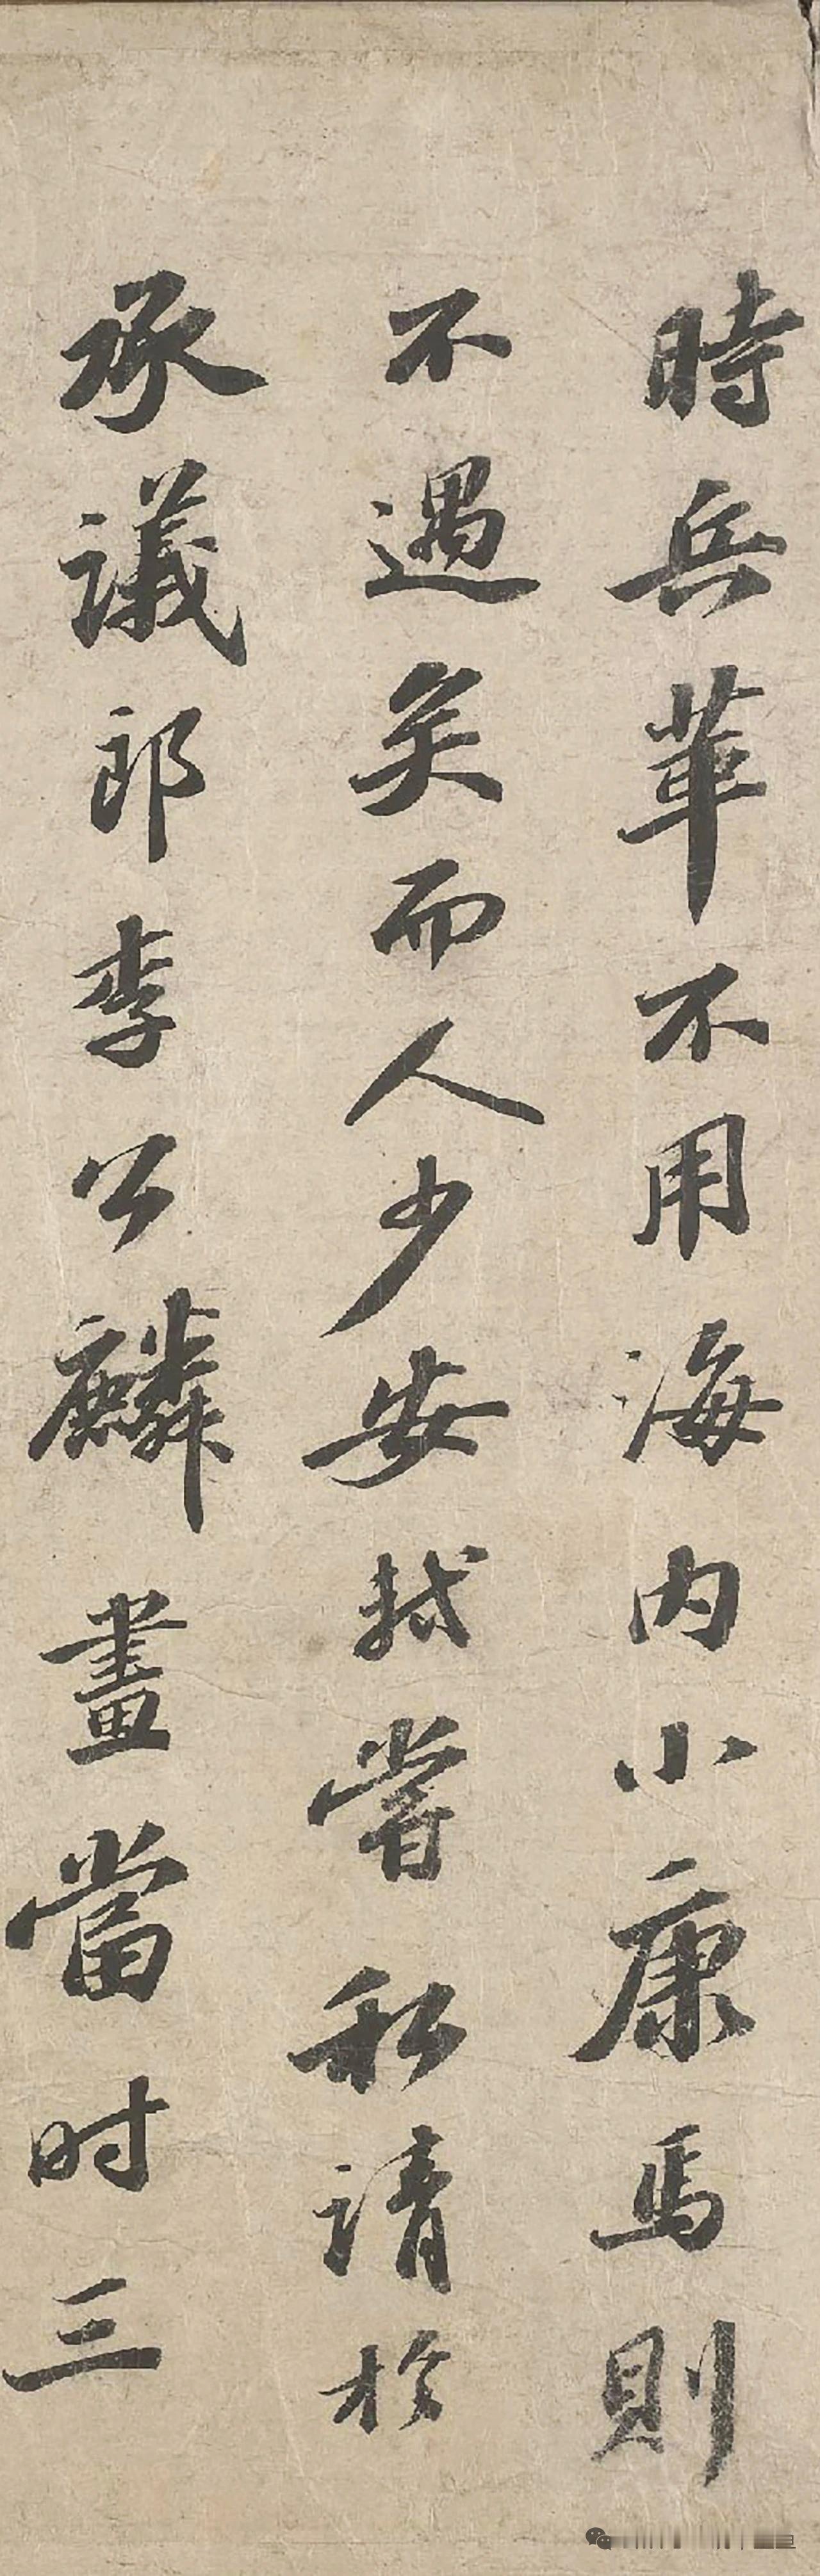 時兵革不用海内小康焉則
不遇矣而人少安軾嘗私請於
承議郎李公麟畫當时三